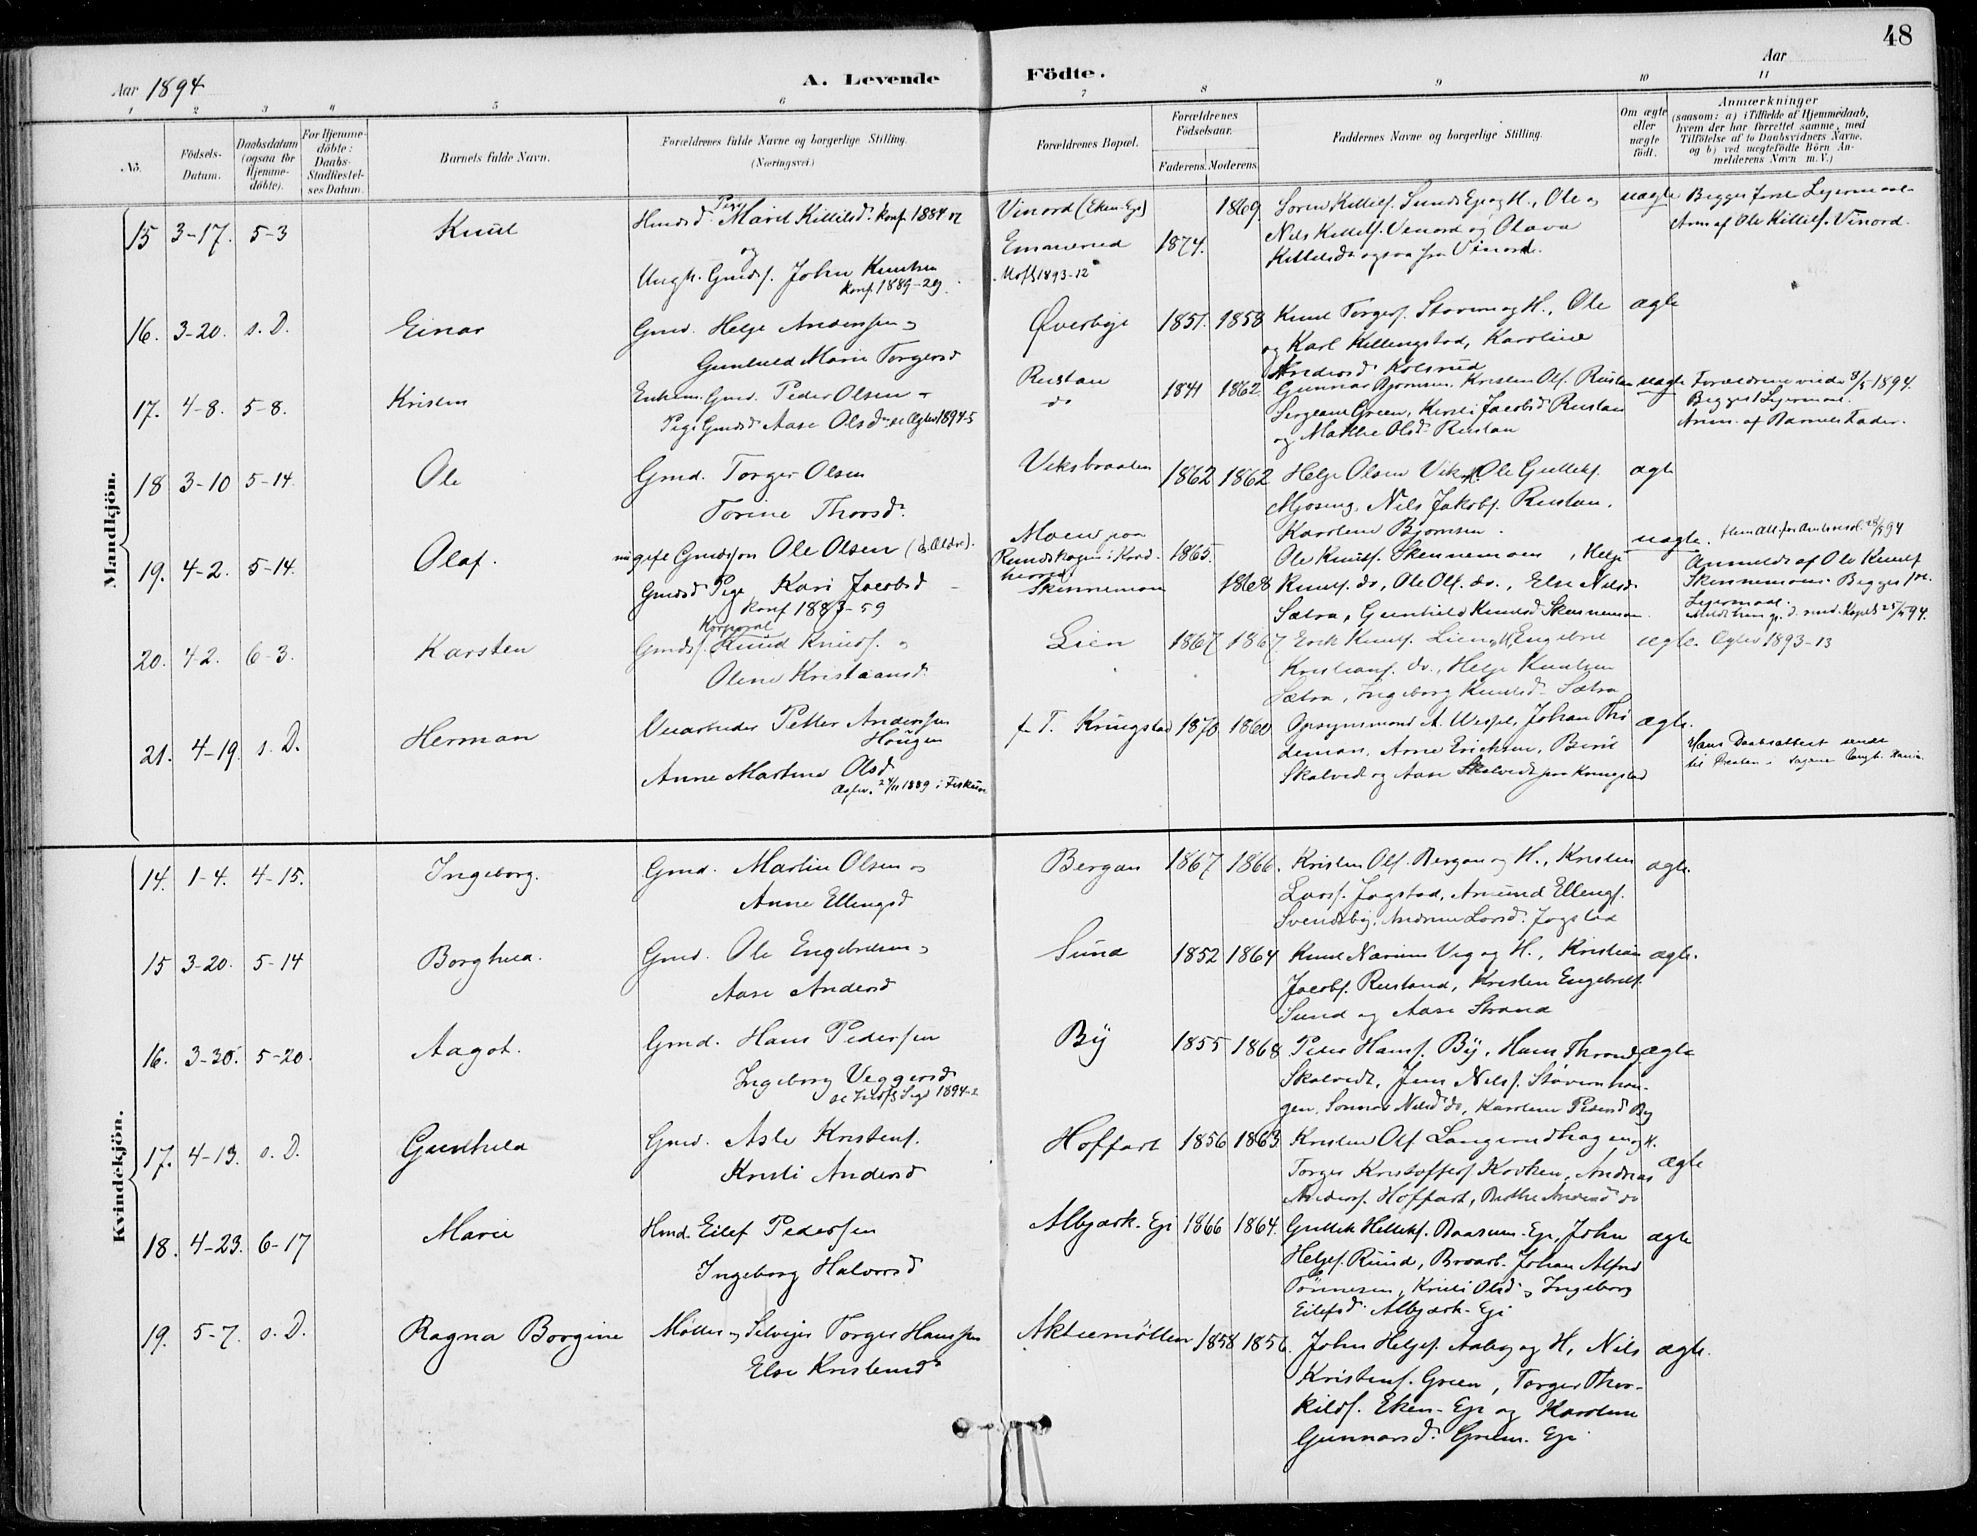 48
Aar 1894
A. Levende Födte.
Aar
1 2 3 4 5 6 7 8 9 10 11
No.
Födsels-Datum.
Daabsdatum (ogsaa for Hjemme-döbte).
For Hjemme-döbte: Daabs-Stadfæstel-ses Datum.
Barnets fulde Navn.
Forældrenes fulde Navne og borgerlige Stilling.
(Næringsvei.)
Forældrenes Bopæl.
Forældrenes Födselsaar.
Faderens. Moderens.
Faddernes Navne og borgerlige Stilling.
Om ægte eller uægte födt.
Anmærkninger
(saasom: a) i Tilfælde af Hjemmedaab, hvem der har forrettet samme, med Tilföielse af to Daabsvidners Navne, og b) ved uægtefödte Börn An-melderens Navn m. V.)
Mandkjön.
15 3-17. 5-3 Knut
Pige Marit Killilsd. konf. 1884
og
Ungk. Gmdsf. John Knutsen
konf. 1889-29.
Vinord (Eken-Eje)
1869
1874.
1893-12
Søren Killilsf. Sunds Eje og H., Ole og
Nils Killilsf. Vinord og Olava
Killilsd. ogsaa fra Vinord.
uægte
Begges første Leiermaal.
Anm. af Ole Killilsf. Vinord.
16. 3-20. s. D. Einar
Gmd. Helge Anderssen og
Gunhild Marie Torgersd
Øverbye 1851. 1858
Knut Torgersf. Stavern og H., Ole
og Karl Killingstad, Karoline
Andersd. Kolsrud
ægte
17. 4-8. 5-8. Kristen
Enkem. Gmd. Peder Olsen og
Pige Gmdsd. Aase Olsd. 1894-5
Rustan
do
1841 1862
Gunnar Bjørnsen, Kristen Olsf. Rustan
Sergeant Green, Kirsti Jacobsd. Rustan
og Mathe Olsd. Rustan
uægte
Forældrene viede 8/5 1894.
Begges 1 Leiermaal.
Anm. af Barnets Fader.
18 3-10 5-14. Ole
Gmd. Torger Olsen
Torine Thorsd.
Viksbraaten 1862 1862
Helge Olsen Vik, Ole Gulliksf.
Mjøseng, Nils Jakobsf. Rustan,
Karoline Bjørnsen.
ægte
19. 4-2. 5-14. Olaf.
ugift Gmdssøn Ole Olsen (d. Ældre).
Gmdsd. Pige Kari Jacobsd
konf 1883-59
Moen paa
Rundskogen i Kord
herred
Skinnemoen
1865.
1868
Ole Knutsf. Skinnemoen, Helge
Knutsf. do, Ole Olsf. do., Else Nilsd.
Sætra, Gunhild Knutsd. Skinnemoen.
uægte.
Anmeldt af Ole Knutsf
Skinnemoen. Begges
Leiermaal.
20. 4-2. 6-3. Karsten
Korporal
Gmdsf. Knud Knudsf. og
Oline Kristiansd.
Lien 1867 1867.
Erik Knutsf. Lien og H, Engebret
Kristiansf. do., Helge Knutsen
Sætra, Ingeborg Knutsd. Sætra
ægte. Ægtev 1893-13
21. 4-19. s. D. Herman
Veiarbeider Petter Anderssen
Haugen
Anne Martine Olsd
Ægtev. 24/11 1889 i Fiskum
f. T. Kringstad 1870 1860
Opsynsmand A. Wespe, Johan Thi
deman, Arne Ericksen, Berit
Skalvedt og Aase Skalvedt paa Kringstad
ægte.
Hans Daabsattest sendt
Kvindekjön.
14. 1-4. 4-15. Ingeborg.
Gmd. Martin Olsen og
Anne Ellingsd
Bergan 1867 1866.
Kristen Olsf. Bergan og H., Kristen
Larsf. Jogstad, Amund Ellingsf.
Svendsby, Andrine Larsd. Jogstad
ægte.
15 3-20. 5-14 Borghild.
Gmd. Ole Engebretsen og
Aase Andersd
Sund 1852 1864
Knut Narum Veg og H., Kristian
Jacobsf. Rustand, Kristen Engebretsf.
Sund og Aase Strand
ægte.
16. 3-30. 5-20. Aagot.
Gmd. Hans Pederssen
Ingeborg Veggersd
1894-2
By 1855 1868
Peder Hansf. By, Hans Thronds
Skalvedt, Jens Nilsf. Støvernhau-
gen, Sonnov Nilsd do, Karoline Pedersd By
ægte
17. 4-13. s. D. Gunhild
Gmd. Asle Kristensf.
Kristi Andersd
Hoffart 1856 1863
Kristen Olsf Langerudhagen og H.
Torger Kristoffersf Kroken, Andreas
Andersf. Hoffart, Berthe Andersd do
ægte
18. 4-23. 6-17 Marie
Hmd. Eilef Pederssen
Ingeborg Halvorsd
Albjærk-Eje 1866 1864.
Gullik Helliksf. Baasum-Eje, John
Helgesf. Ruud, Broarb. Johan Alfred
Tønnesen, Kristi Olsd og Ingeborg
Eilefsd. Albjærk-Eje
ægte
19. 5-7. s. D. Ragna Borgine
Møller og Selveier Torger Hanssen
Else Kristensd
Aktiemøllen 1858 1856.
John Helgesf. Aaby og H, Nils
Kristensf. Green, Torger Thor-
kildsf. Eken-Eje og Karoline
Gunnarsd. Green-Eje
ægte.